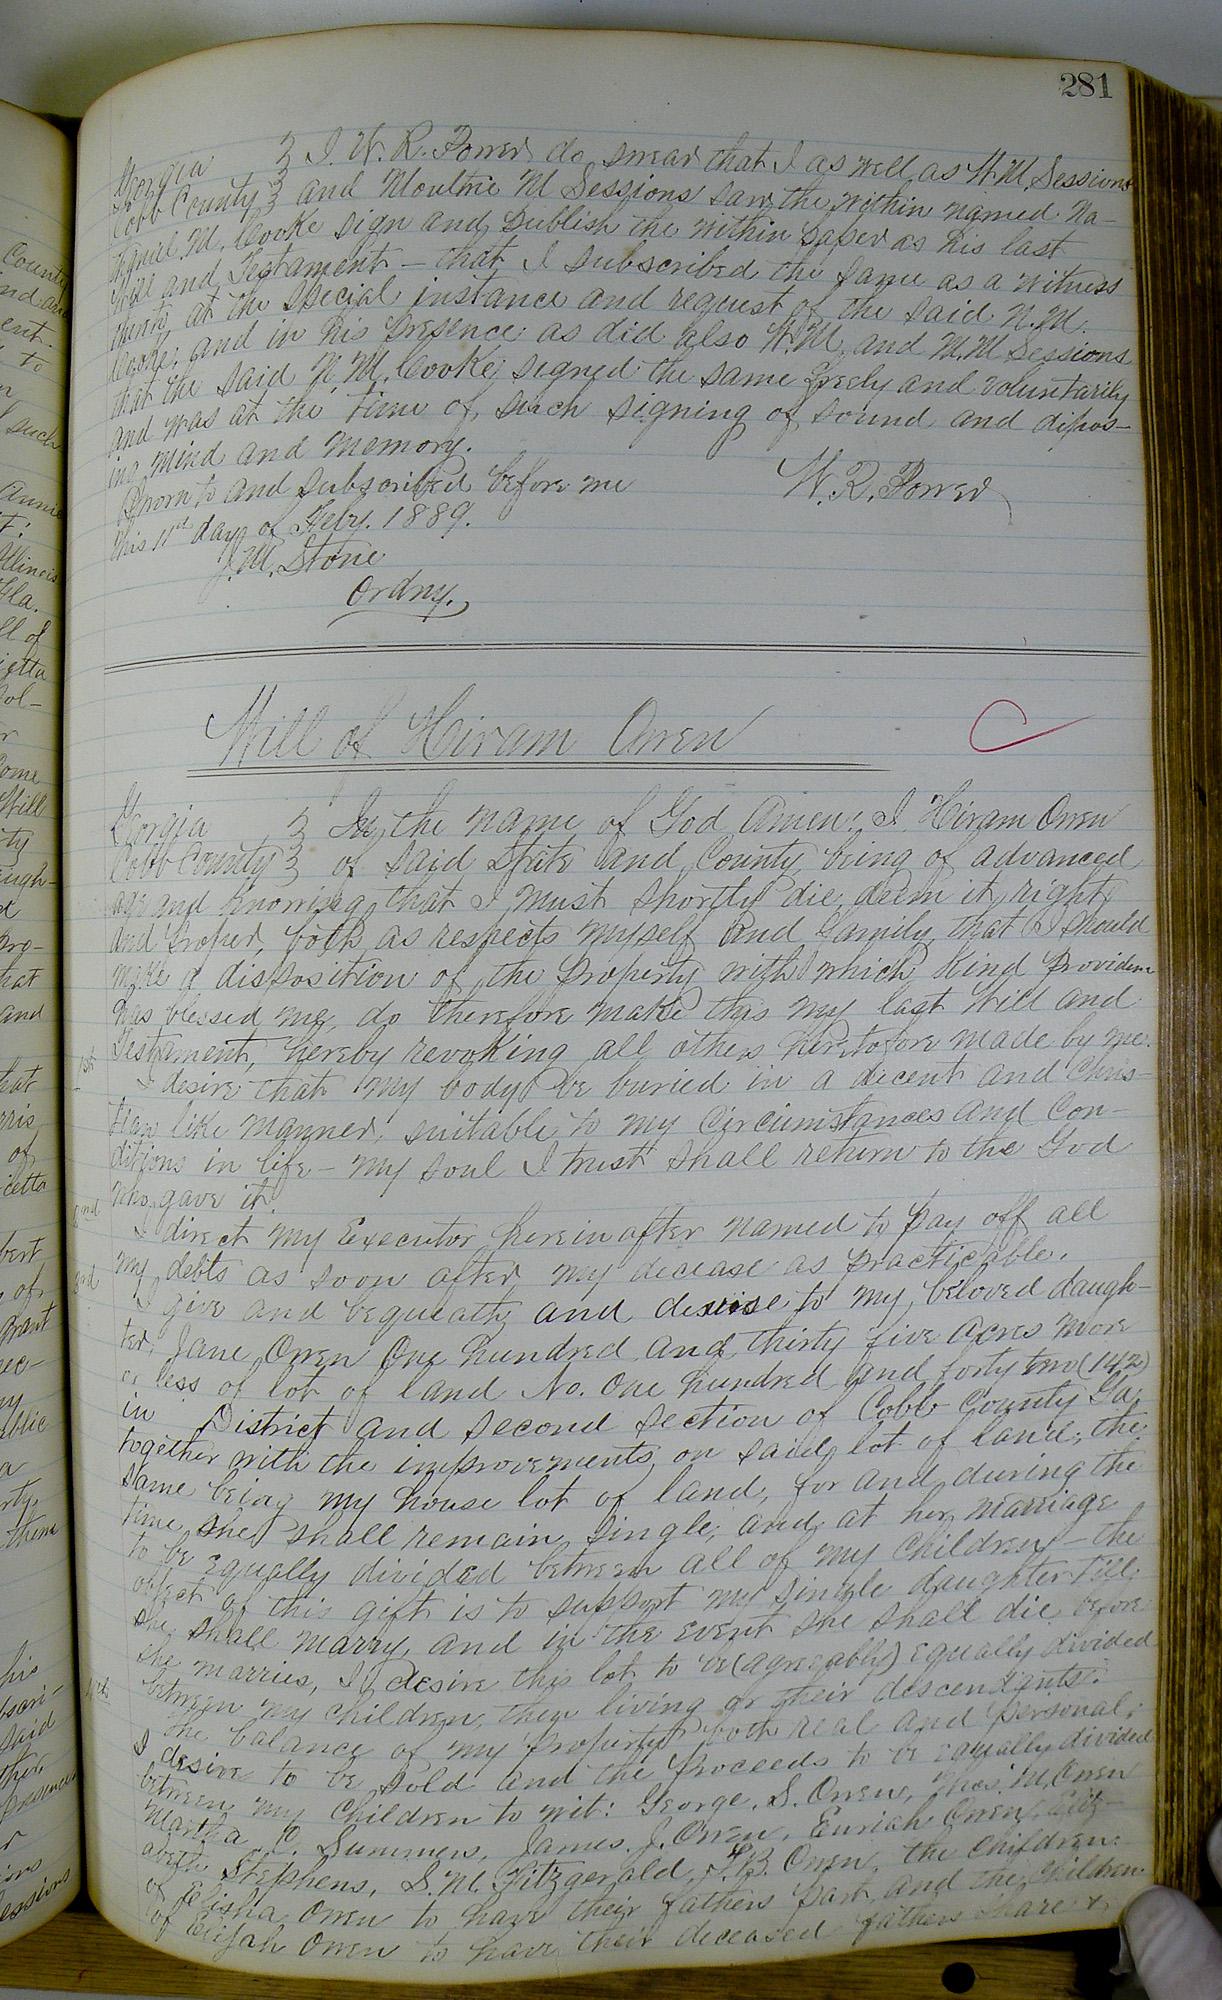 281
Georgia } I W. R. Power do swear that I as well as W. M. Sessions
Cobb County } and Moultrie M Sessions saw the within named Na-
thaniel M. Cooke sign and publish the within paper as his last
Will and Testament - that I subscribed the same as a witness
thereto at the special instance and request of the said N. M.
Cooke; and in his presence: as did also W. M. and M. M Sessions
that the said N. M. Cooke signed the same freely and voluntarily
and was at the time of such signing of sound and dispos-
ing mind and memory.
Sworn to and subscribed before me W. R. Power
this 11th day of Feby. 1889.
J. M. Stone
Ordny.
Will of Hiram Owen
Georgia } In the name of God Amen: I Hiram Owen
Cobb County } of said State and County being of advanced
age and knowing that I must shortly die deem it right
and proper, both as respects myself and family that I should
make a disposition of the property with which Kind Providence
has blessed me, do therefore make this my last Will and
Testament, hereby revoking all others heretofore made by me.
1st I desire that my body be buried in a decent and Chris-
tian like manner, suitable to my circumstances and con-
ditions in life - my soul I trust shall return to the God
who gave it.
2nd I direct my Executor herein after named to pay off all
my debts as soon after my decease as practicable.
3rd I give and bequeath and devise to my beloved daugh-
ter, Jane Owen One hundred and thirty five acres more
or less of lot of land No. One hundred and forty two (142)
in District and second section of Cobb County Ga.
together with the improvements on said lot of land; the
same being my house lot of land, for and during the
time she shall remain single; and at her marriage
to be equally divided between all of my children - the
object of this gift is to support my single daughter till
she shall marry, and in the event she shall die before
she marries, I desire this lot to be (agreeably) equally divided
between my children, then living or their descendants.
4th The balance of my property both real and personal;
I desire to be sold and the proceeds to be equally divided
between my children to wit: George. S. Owen, Thos. M. Owen
Martha Summers, James. J. Owen, Euriah Owen, Eliz-
abeth Stephens, S. M. Fitzgerald, Owen, the children
of Elisha Owen to have their fathers part, and the children
of Elijah Owen to have their deceased fathers share &